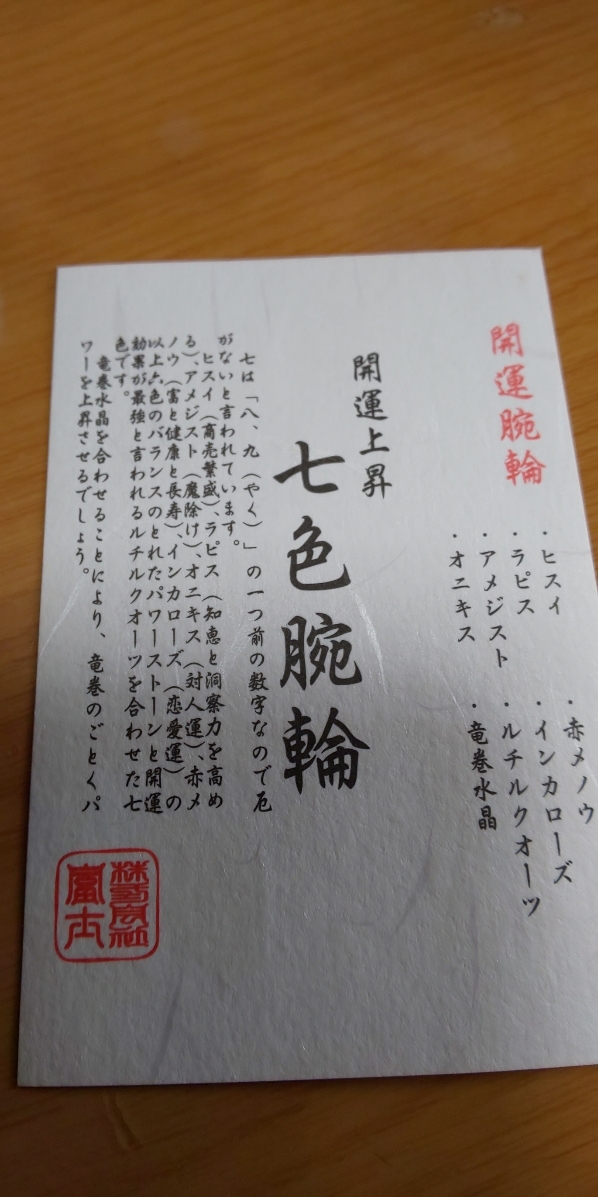 開運腕輪
・ヒスイ
・ラピス
・アメジスト
・オニキス
・赤メノウ
・インカローズ
・ルチルクオーツ
・竜巻水晶
開運上昇
七色腕輪
七は「八、九（やく）」の一つ前の数字なので厄
がないと言われています。
ヒスイ（商売繁盛）、ラピス（知恵と洞察力を高め
る）、アメジスト（魔除け）、オニキス（対人運）、赤メ
ノウ（富と健康と長寿）、インカローズ（恋愛運）の
以上六色のバランスのとれたパワーストーンと開運
効果が最強と言われるルチルクオーツを合わせた七
色です。
竜巻水晶を合わせることにより、竜巻のごとくパ
ワーを上昇させるでしょう。
株式会社
富士